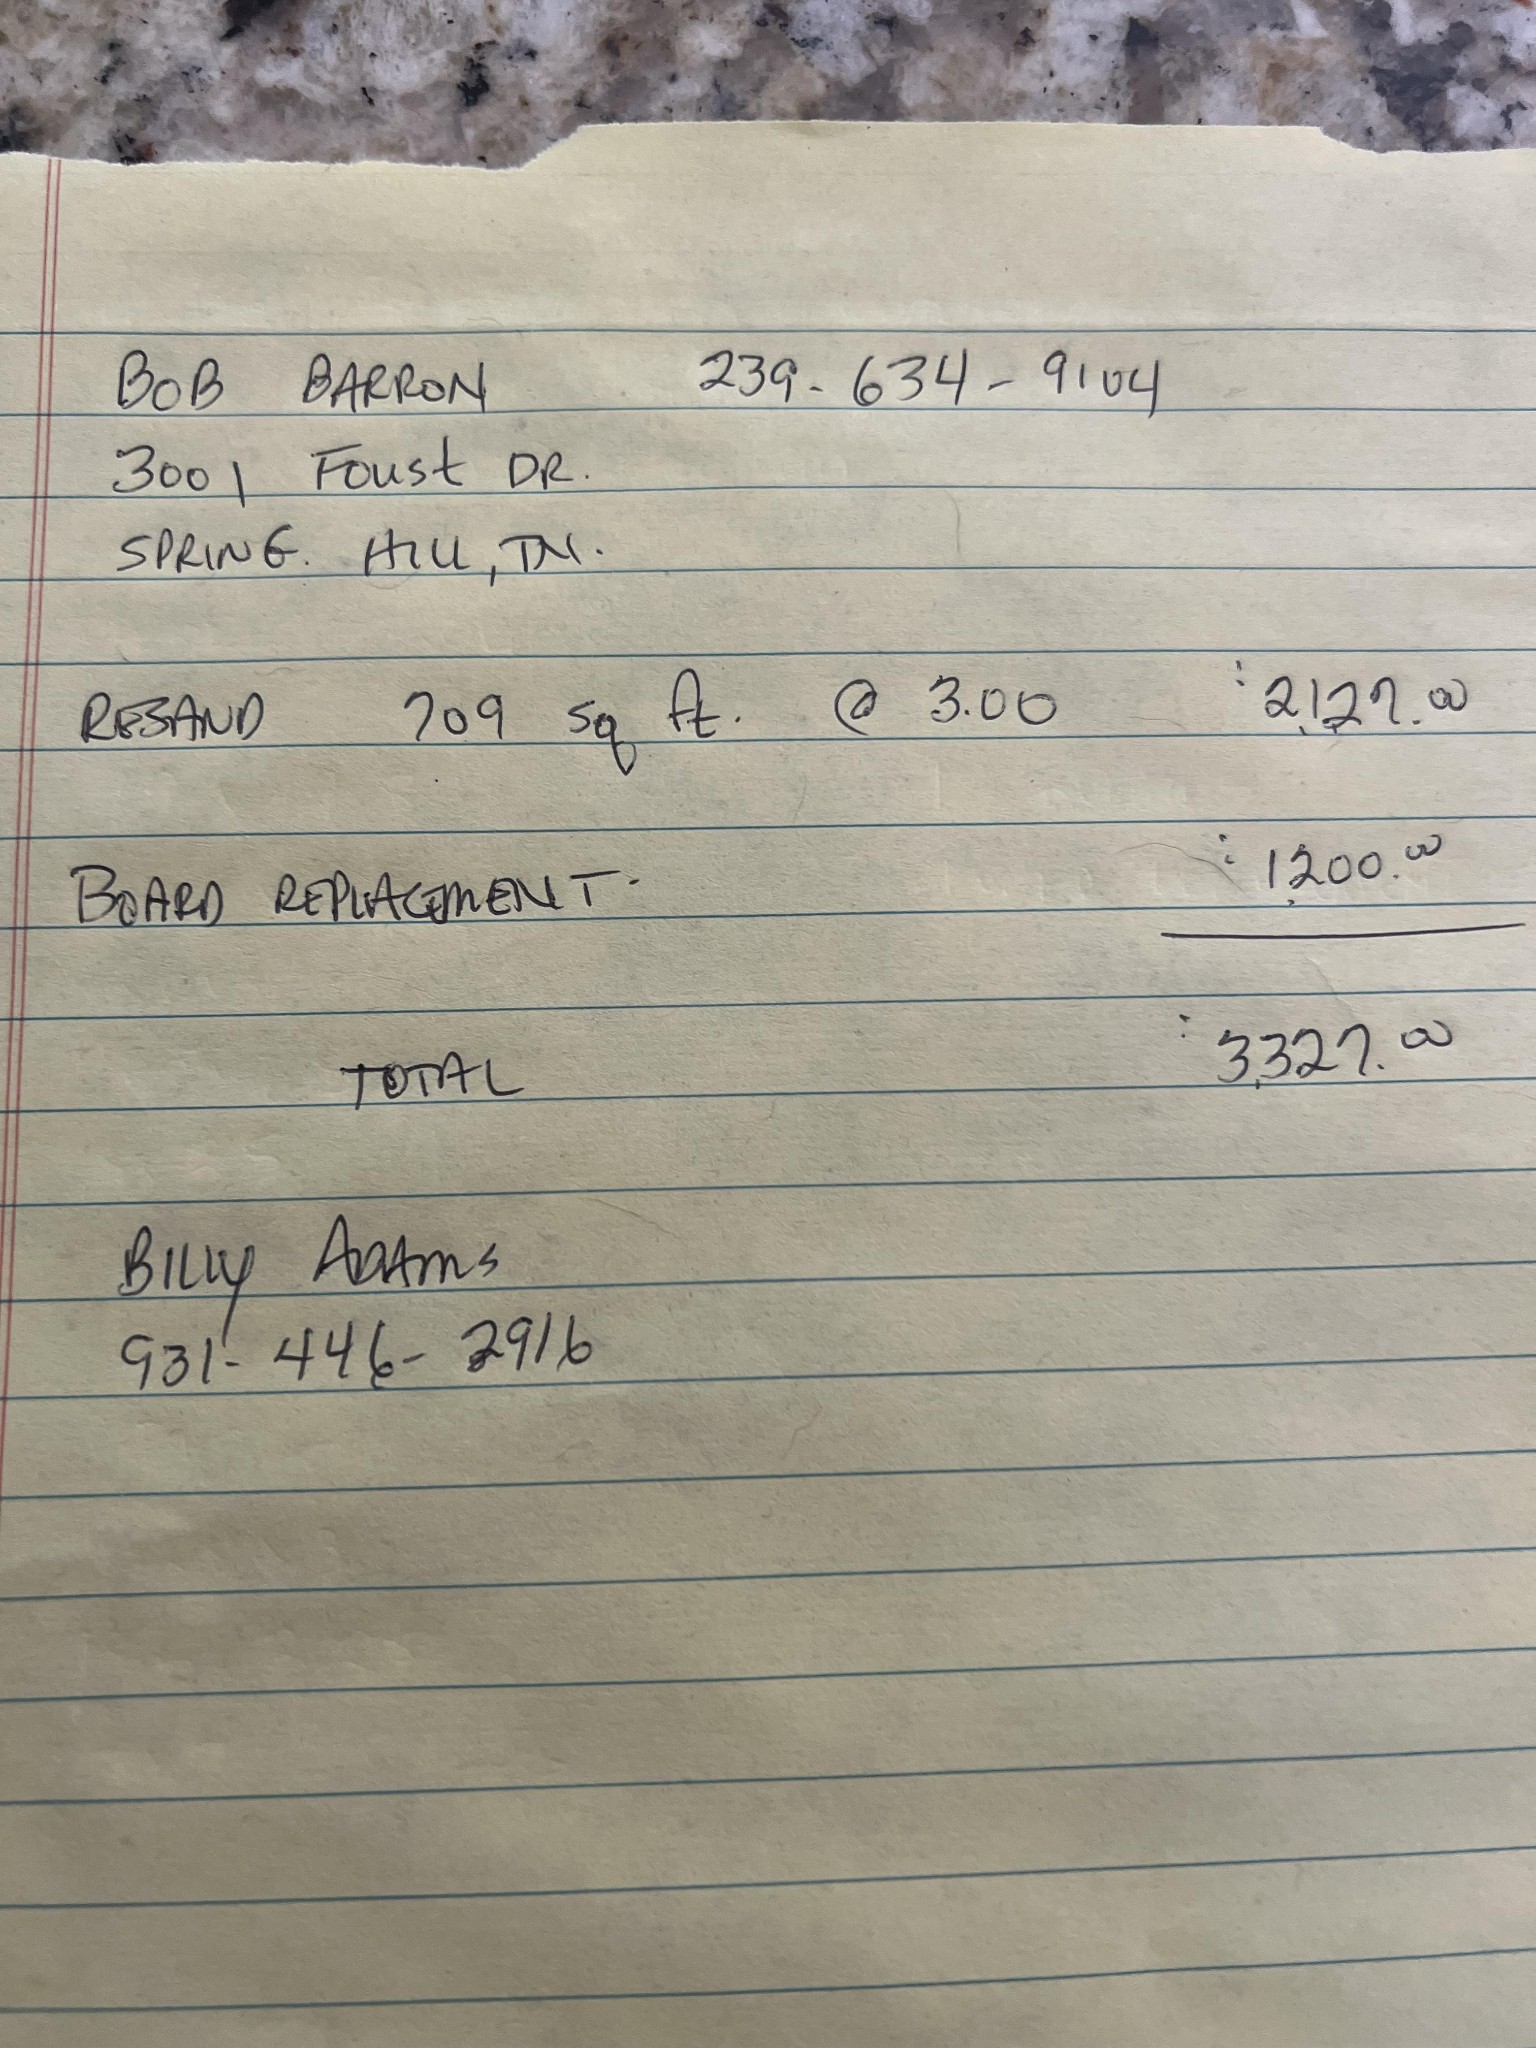 BOB BARRON 239-634-9104
3001 Foust DR.
SPRING. HILL, TN.
RESAND 709 sq ft. @ 3.00 : 2,127.00
BOARD REPLACEMENT. : 1,200.00
TOTAL : 3,327.00
BILLY ADAMS
931-446-2916